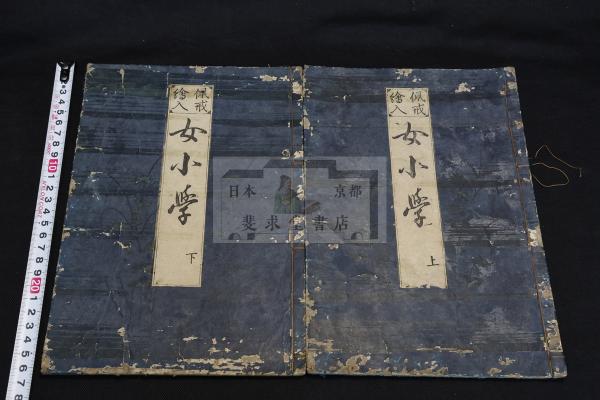 佩戒
繪入
女小學
上
佩戒
繪入
女小學
下
日本 京都
斐求堂書店
3 4 5 6 7 8 9 10 1 2 3 4 5 6 7 8 9 20 1 2 3 4 5 6